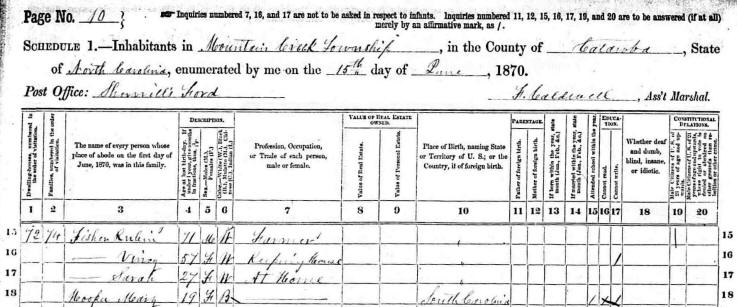 Page No. 10 }
Inquiries numbered 7, 16, and 17 are not to be asked in respect to infants. Inquiries numbered 11, 12, 15, 16, 17, 19, and 20 are to be answered (if at all) merely by an affirmative mark, as /.
SCHEDULE 1.—Inhabitants in Mountain Creek Township, in the County of Catawba, State
of North Carolina, enumerated by me on the 15th day of June, 1870.
Post Office: Sherrill's Ford
F. Caldwell, Ass't Marshal.
Dwelling-houses, numbered in the order of visitation.
Families, numbered in the order of visitation.
The name of every person whose place of abode on the first day of June, 1870, was in this family.
DESCRIPTION.
Profession, Occupation, or Trade of each person, male or female.
VALUE OF REAL ESTATE OWNED.
Value of Real Estate.
Value of Personal Estate.
Place of Birth, naming State or Territory of U. S.; or the Country, if of foreign birth.
PARENTAGE.
Father of foreign birth.
Mother of foreign birth.
Attended school within the year.
EDUCATION.
Cannot read.
Cannot write.
Whether deaf and dumb, blind, insane, or idiotic.
CONSTITUTIONAL RELATIONS.
1 2 3 4 5 6 7 8 9 10 11 12 13 14 15 16 17 18 19 20
15 72 74 Fisher Rubin 71 M W Farmer 15
16 — 57 F W Keeping House 16
17 — Sarah 27 F W At Home 17
18 Hooper Mary 19 F B South Carolina 18